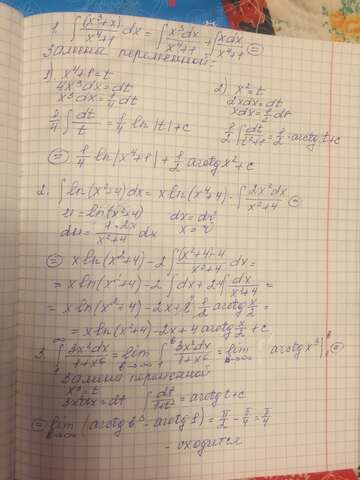 1. ∫ (x³+x)/(x⁴+1) dx = ∫ x³dx/(x⁴+1) + ∫ xdx/(x⁴+1) ⊜
Замена переменной:
1) x⁴+1=t 2) x²=t
4x³dx=dt 2xdx=dt
x³dx=1/4 dt xdx=1/2 dt
1/4 ∫ dt/t = 1/4 ln|t|+c 1/2 ∫ dt/(t²+1) = 1/2 arctg t+c
⊜ 1/4 ln|x⁴+1| + 1/2 arctg x²+c
2. ∫ ln(x²+4)dx = x ln(x²+4) - ∫ 2x²dx/(x²+4) ⊜
u = ln(x²+4) dx = dv
du = 1·2x/(x²+4) dx x = v
⊜ x ln(x²+4) - 2 ∫ (x²+4-4)/(x²+4) dx =
= x ln(x²+4) - 2 ∫ dx + 2·4 ∫ dx/(x²+4) =
= x ln(x²+4) - 2x + 8·1/2 arctg x/2 =
= x ln(x²+4) - 2x + 4 arctg x/2 + c
3. ∫₁^∞ 3x²dx/(1+x⁶) = lim b→∞ ∫₁^b 3x²dx/(1+x⁶) = lim b→∞ arctg x³|₁^b ⊜
Замена переменной
x³=t
3x²dx=dt ∫ dt/(1+t²) = arctg t+c
⊜ lim b→∞ (arctg b³ - arctg 1) = π/2 - π/4 = π/4
- сходится